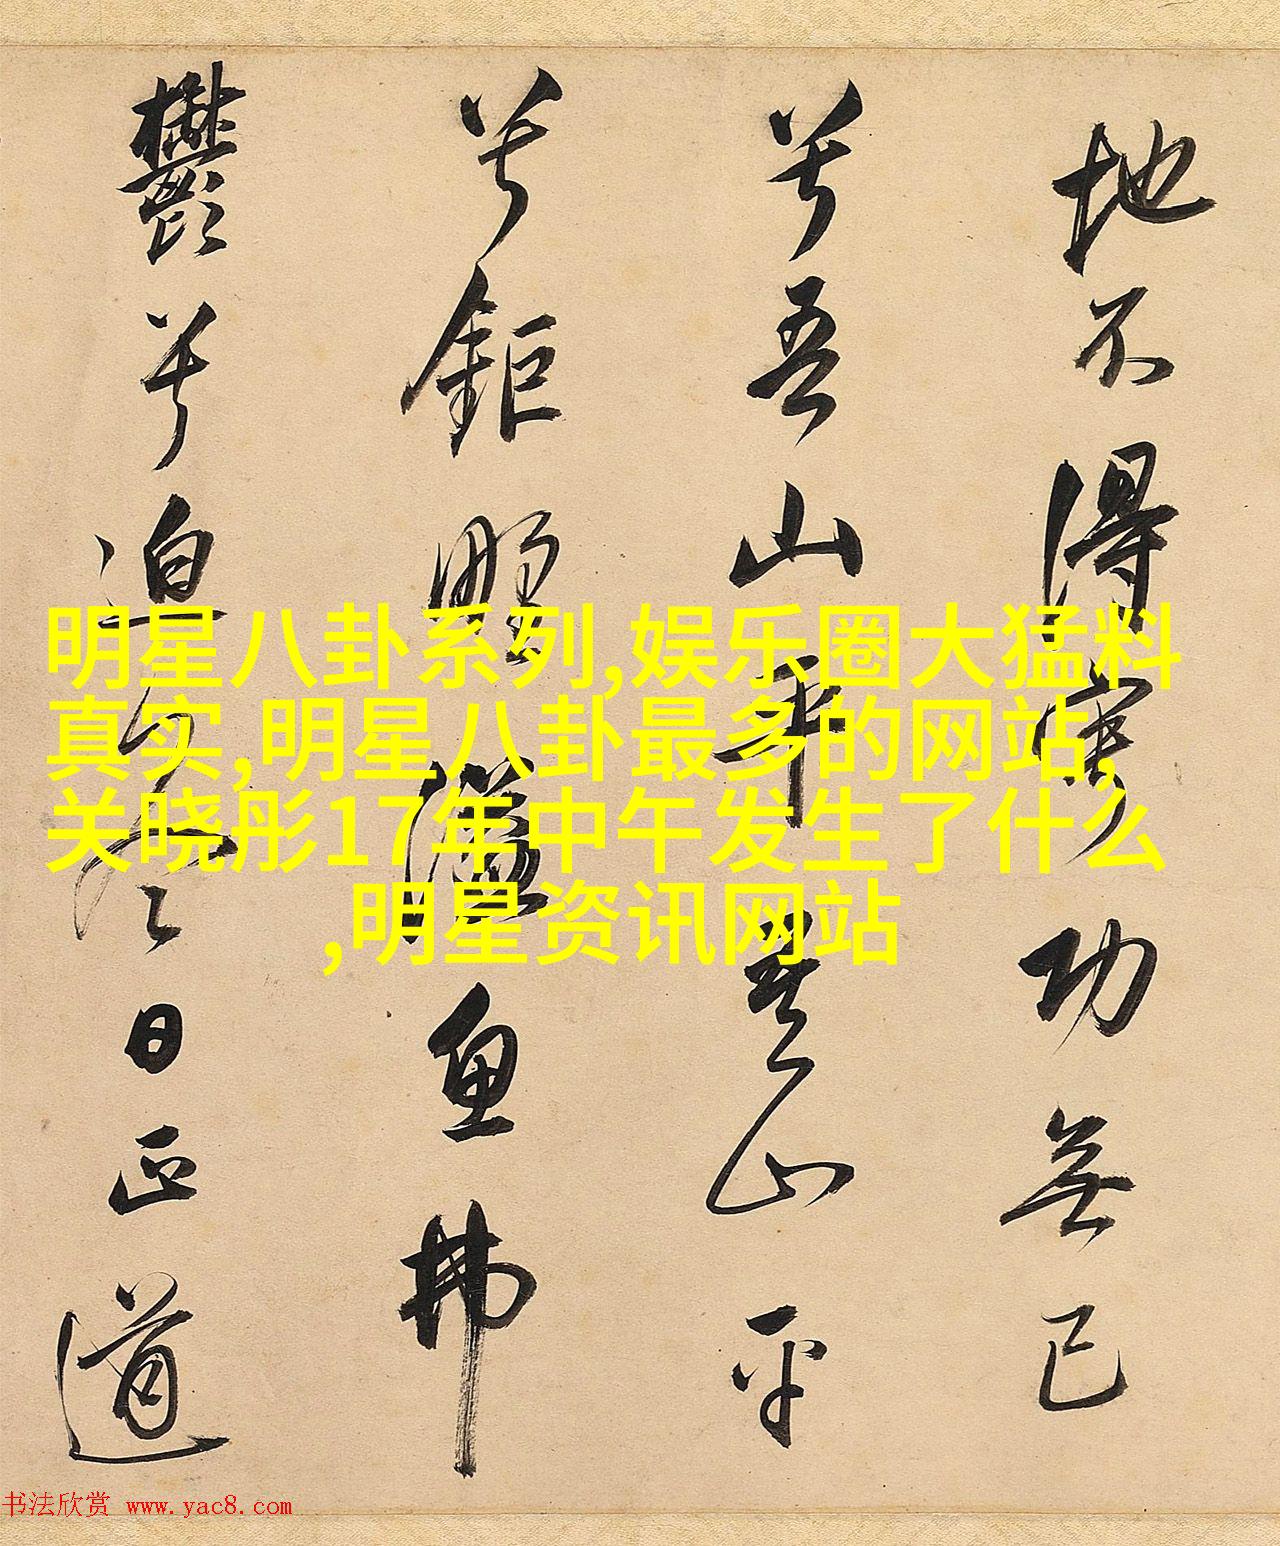 地不得寧功無已
兮吾山平吾山平
兮鉅野溢魚拂
鬱兮迫冬日正道
明星八卦系列,娱乐圈大猛料
真实,明星八卦最多的网站,
关晓彤17年中午发生了什么
,明星资讯网站
书法欣赏 www.yac8.com